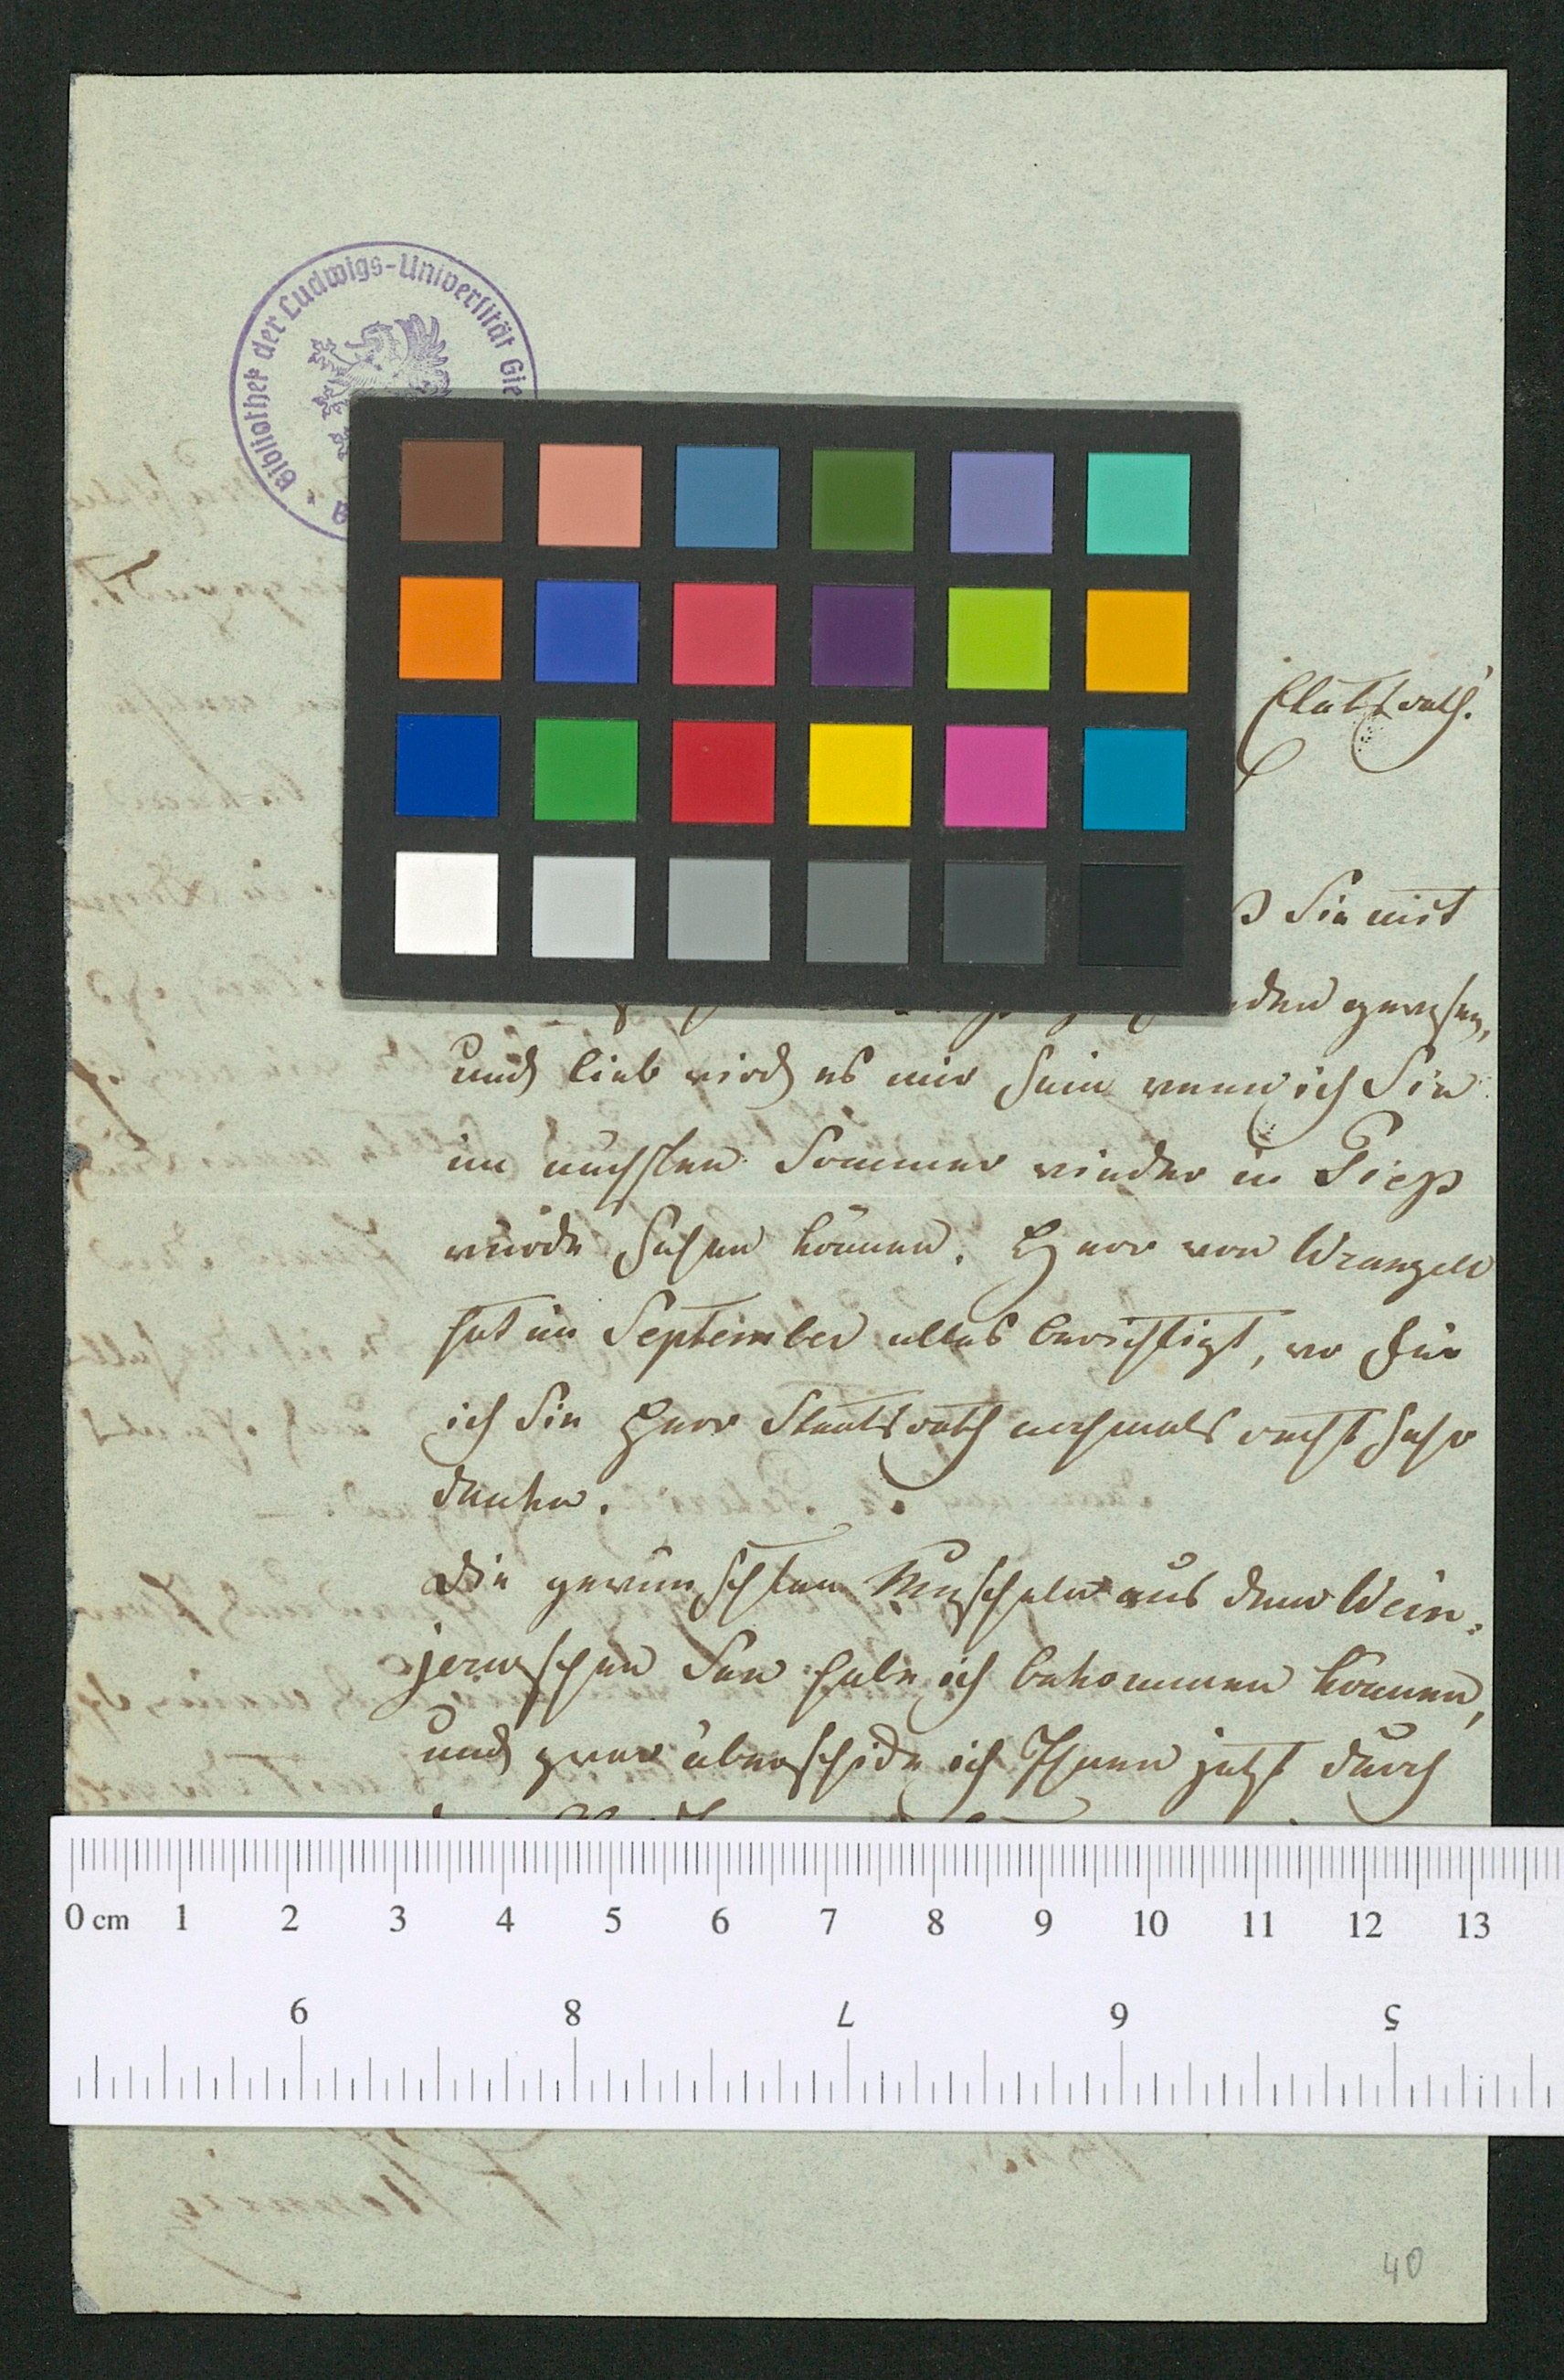 Bibliothek der Ludwigs-Universität Gie
Etatsrath!
ß Sie mit
den gewesen,
und lieb wird es mir sein wenn ich Sie
im nächsten Sommer wieder in Piep
würde sehen können. Herr von Wrangell
hat im September alles berichtigt, wo für
ich Sie Herr Staatsrath nochmals recht sehr
danke.
Die gewünschten Muscheln aus dem Wein,
jerwschen See habe ich bekommen können,
und zwar überschicke ich Ihnen jetzt durch
0 cm 1 2 3 4 5 6 7 8 9 10 11 12 13
9 8 7 6 5
40